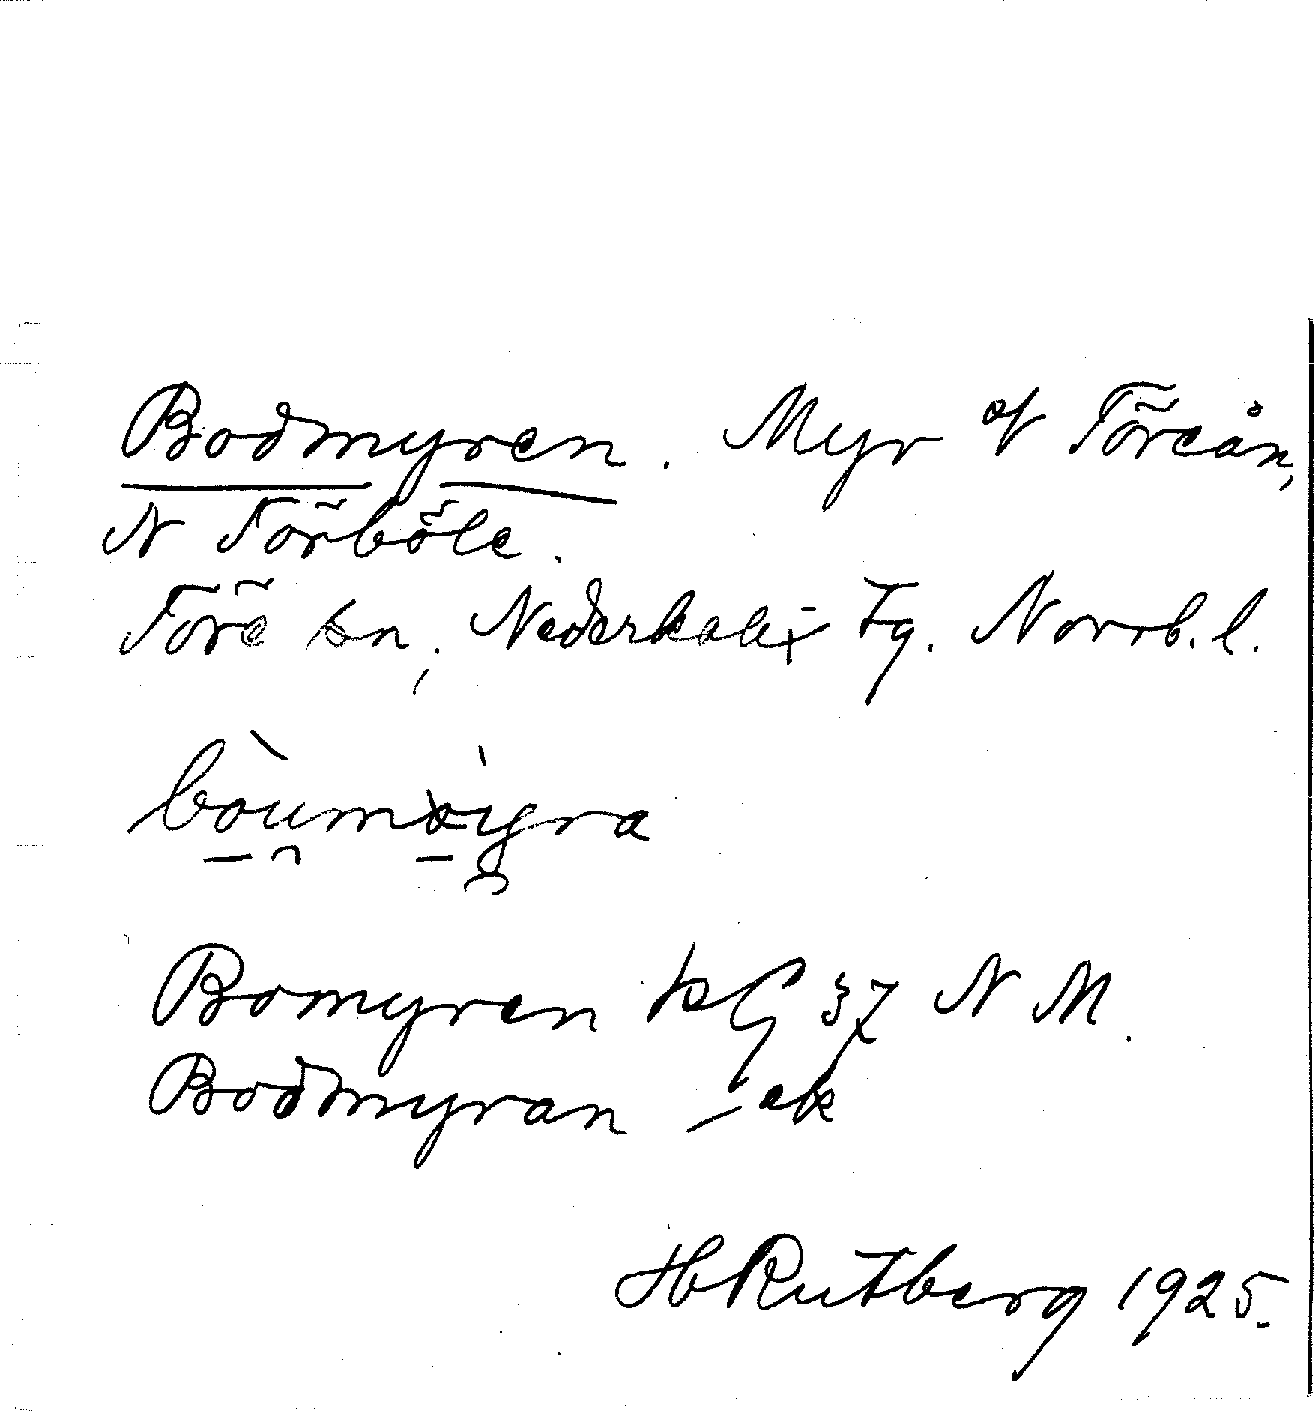 Bodmyren. Myr of Töreån,
N Törböle.
Töre sn, Nederkalix Tg. Norrb. l.
Bomyren kG 37 N M.
Bodmyran – ek
H Rutberg 1925.